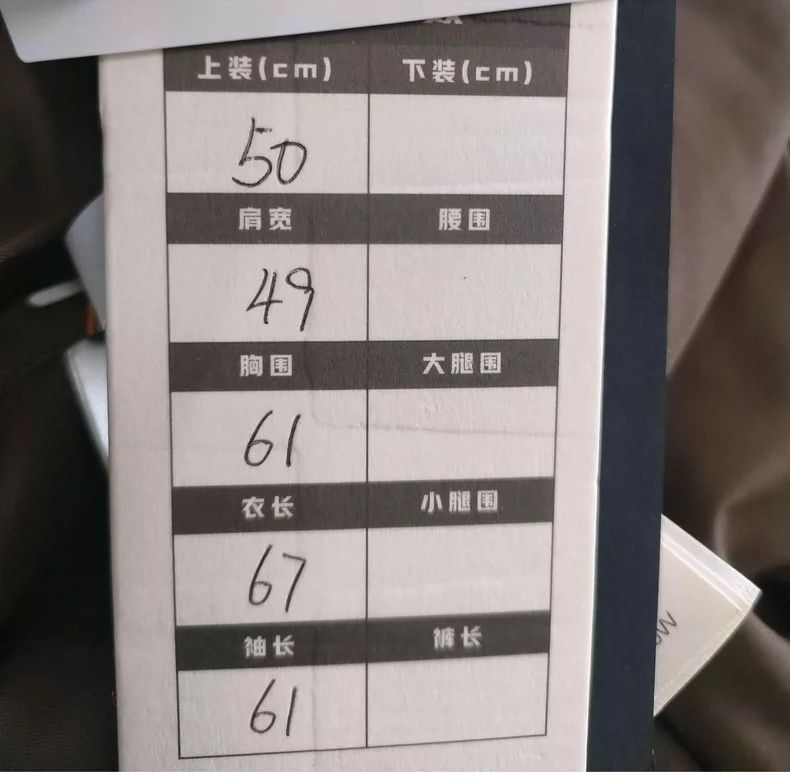 上装(cm) 下装(cm)
50
肩宽 腰围
49
胸围 大腿围
61
衣长 小腿围
67
袖长 裤长
61